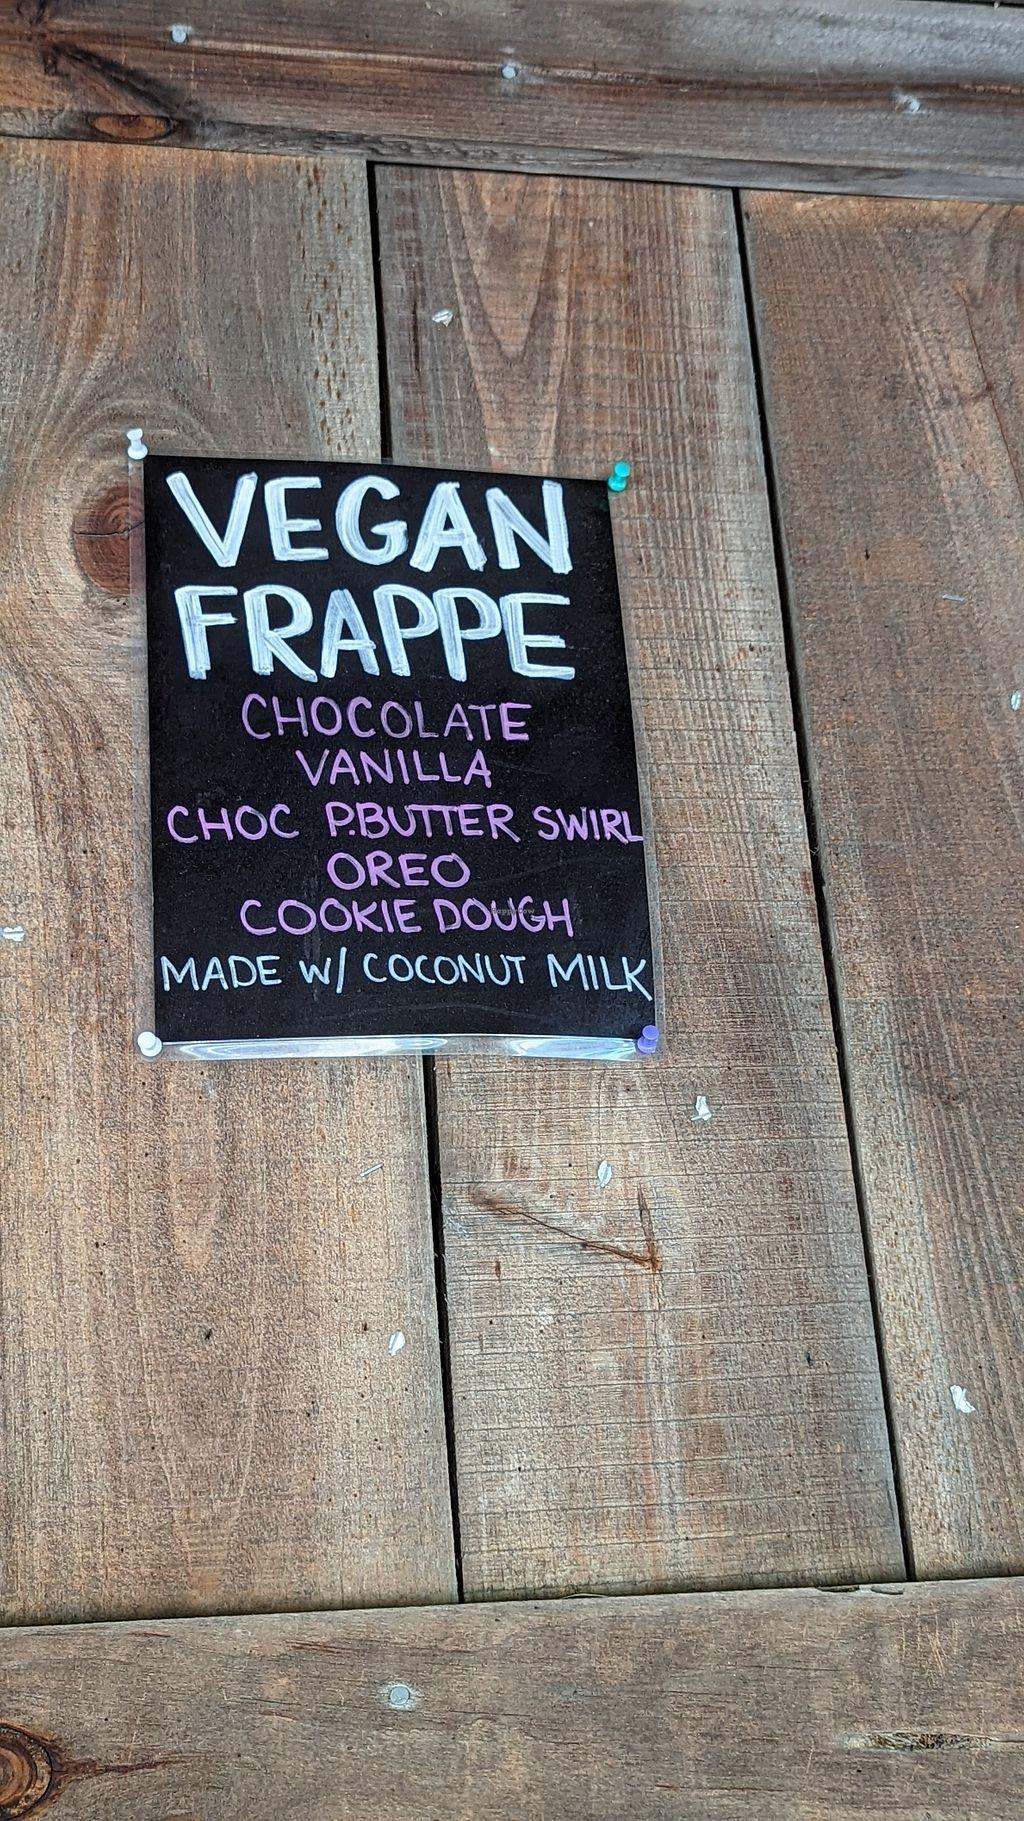 VEGAN
FRAPPE
CHOCOLATE
VANILLA
CHOC P.BUTTER SWIRL
OREO
COOKIE DOUGH
MADE W/ COCONUT MILK